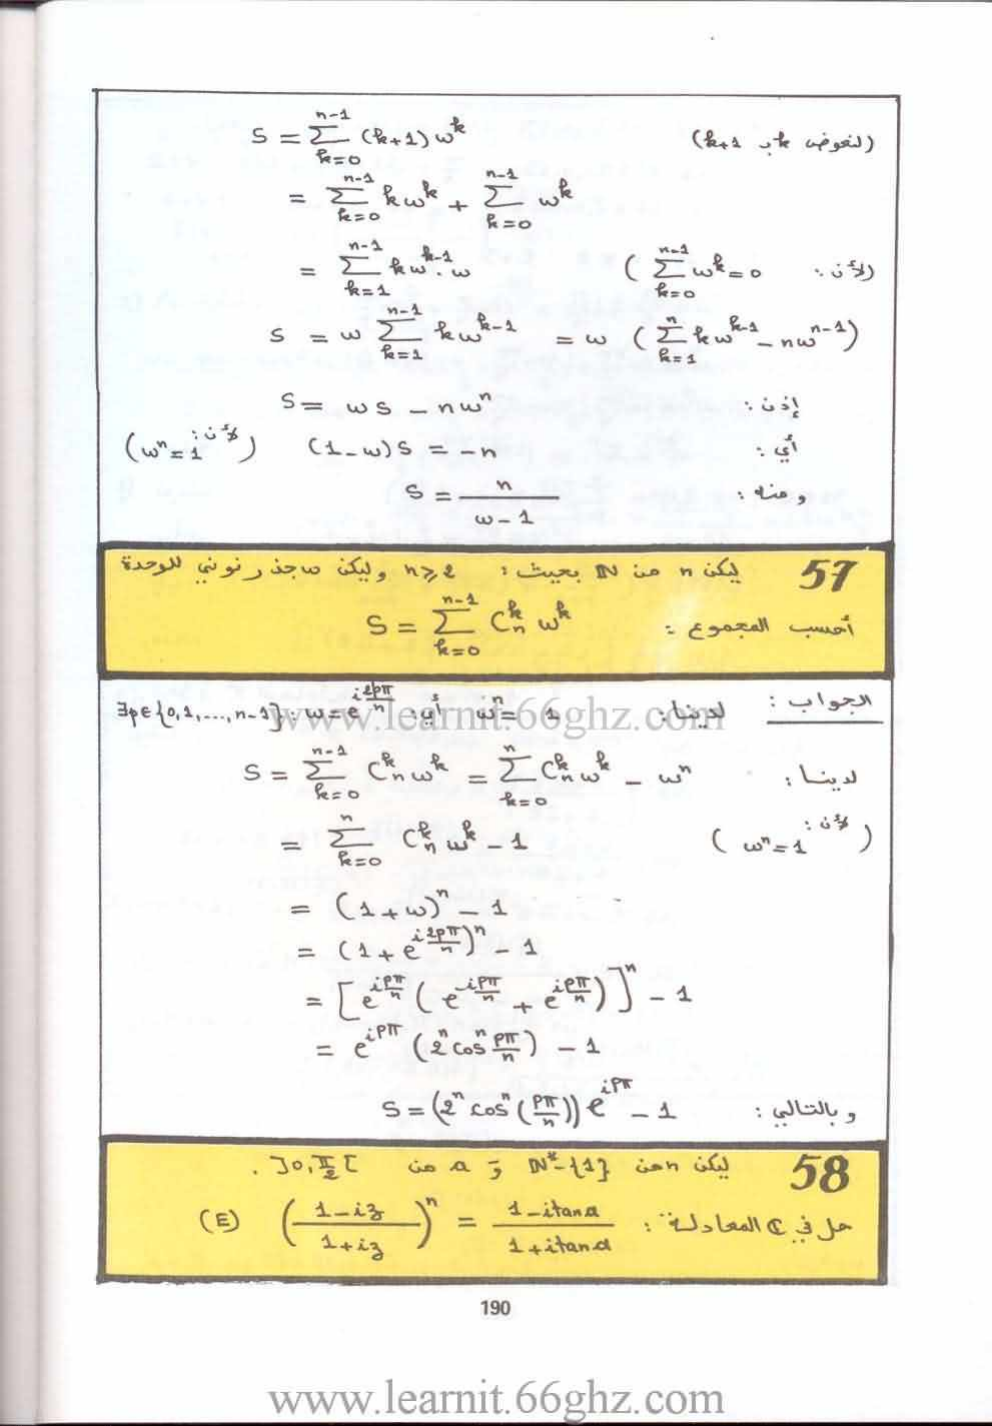 S = \sum_{k=0}^{n-1} (k+1) ω^k (نعوض k ب k+1)
= \sum_{k=0}^{n-1} k ω^k + \sum_{k=0}^{n-1} ω^k
= \sum_{k=1}^{n-1} k ω^{k-1} . ω (لأن : \sum_{k=0}^{n-1} ω^k = 0)
S = ω \sum_{k=1}^{n-1} k ω^{k-1} = ω ( \sum_{k=1}^{n} k ω^{k-1} - n ω^{n-1} )
إذن : S = ω S - n ω^n
أي : (1-ω) S = -n (لأن : ω^n = 1)
ومنه : S = \frac{n}{ω-1}
57 ليكن n من ℕ بحيث : n ⩾ 2 وليكن ω جذر نوني للوحدة
أحسب المجموع : S = \sum_{k=0}^{n-1} C_n^k ω^k
الجواب : لدينا : ω^n = 1 أي : ∃p∈{0,1,...,n-1} : ω = e^{i\frac{2pπ}{n}}
www.learnit.66ghz.com
لدينا : S = \sum_{k=0}^{n-1} C_n^k ω^k = \sum_{k=0}^{n} C_n^k ω^k - ω^n
= \sum_{k=0}^{n} C_n^k ω^k - 1 (لأن : ω^n = 1)
= (1+ω)^n - 1
= (1 + e^{i\frac{2pπ}{n}})^n - 1
= [ e^{i\frac{pπ}{n}} ( e^{-i\frac{pπ}{n}} + e^{i\frac{pπ}{n}} ) ]^n - 1
= e^{ipπ} (2^n cos^n \frac{pπ}{n}) - 1
وبالتالي : S = (2^n cos^n (\frac{pπ}{n})) e^{ipπ} - 1
58 ليكن n من ℕ* - {1} و a من ]0, \frac{π}{2}[ .
حل في ℂ المعادلة : (\frac{1-iz}{1+iz})^n = \frac{1-i tan a}{1+i tan a} (E)
190
www.learnit.66ghz.com